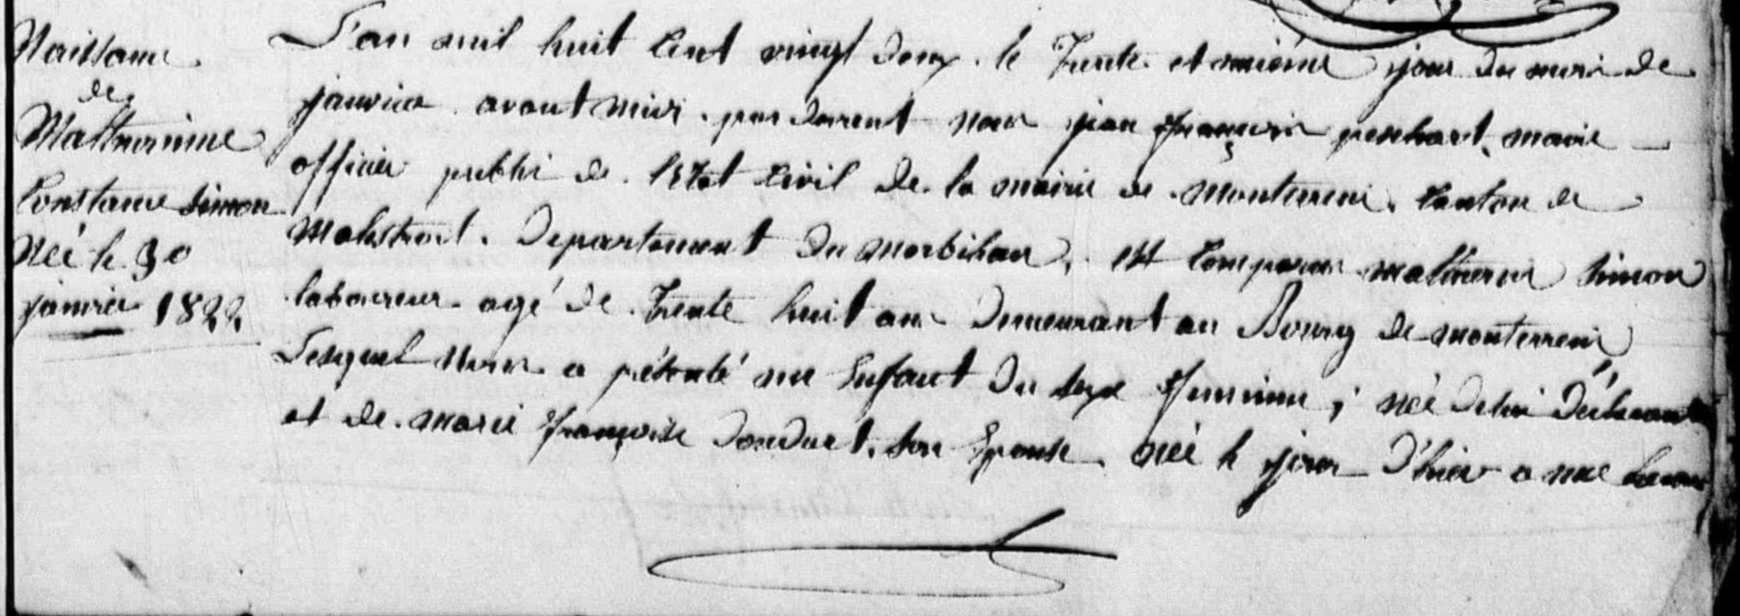 Naissance
de
Mathurinne
Constance Simon
Née le 30
janvier 1822
L'an mil huit cent vingt deux. le Trente et uniéme jour du mois de
janvier avant midi. par devant nous jean françois maire
officier public de l'Etat civil de la mairie de monterrein. Canton de
Malestroit. Departement du morbihan, est comparu mathurin Simon
laboureur agé de Trente huit ans demeurant au Bourg de monterrein
Lesquel nous a présenté une Enfant du sexe feminine, née de lui Déclarant
et de marie françoise son Epouse. née le jour D'hier a une heure